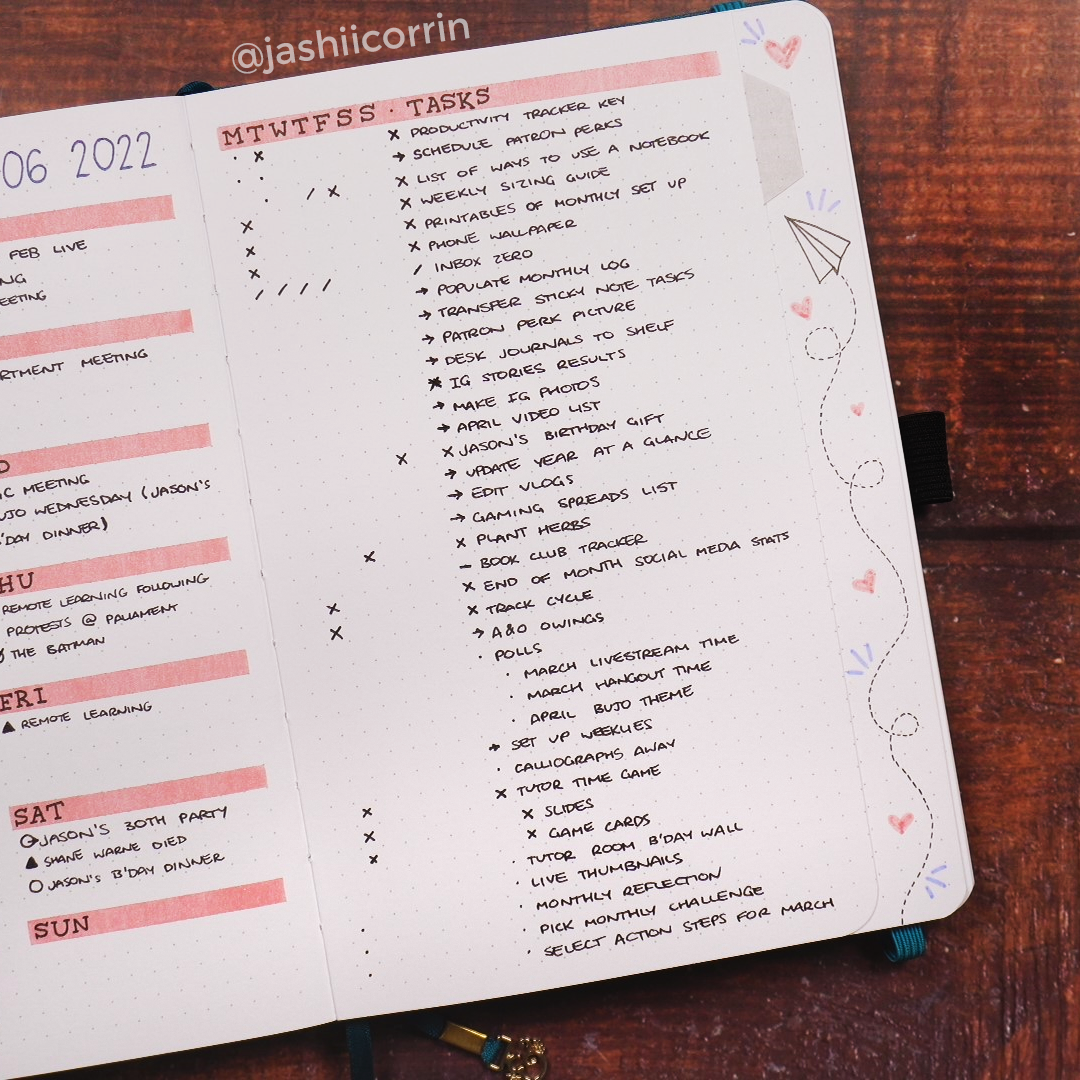 @jashiicorrin
06 2022
FEB LIVE
NG
EETING
RTMENT MEETING
D
IC MEETING
UJO WEDNESDAY (JASON'S
B'DAY DINNER)
HU
REMOTE LEARNING FOLLOWING
PROTESTS @ PALIAMENT
THE BATMAN
FRI
▲ REMOTE LEARNING
SAT
JASON'S 30TH PARTY
▲ SHANE WARNE DIED
O JASON'S B'DAY DINNER
SUN
MTWTFSS · TASKS
x PRODUCTIVITY TRACKER KEY
→ SCHEDULE PATRON PERKS
x LIST OF WAYS TO USE A NOTEBOOK
x WEEKLY SIZING GUIDE
x PRINTABLES OF MONTHLY SET UP
x PHONE WALLPAPER
/ INBOX ZERO
→ POPULATE MONTHLY LOG
→ TRANSFER STICKY NOTE TASKS
→ PATRON PERK PICTURE
→ DESK JOURNALS TO SHELF
x IG STORIES RESULTS
→ MAKE IG PHOTOS
→ APRIL VIDEO LIST
x JASON'S BIRTHDAY GIFT
→ UPDATE YEAR AT A GLANCE
→ EDIT VLOGS
→ GAMING SPREADS LIST
x PLANT HERBS
– BOOK CLUB TRACKER
x END OF MONTH SOCIAL MEDIA STATS
x TRACK CYCLE
→ A&O OWINGS
· POLLS
· MARCH LIVESTREAM TIME
· MARCH HANGOUT TIME
· APRIL BUJO THEME
→ SET UP WEEKLIES
· CALLIOGRAPHS AWAY
x TUTOR TIME GAME
x SLIDES
x GAME CARDS
· TUTOR ROOM B'DAY WALL
· LIVE THUMBNAILS
· MONTHLY REFLECTION
· PICK MONTHLY CHALLENGE
· SELECT ACTION STEPS FOR MARCH